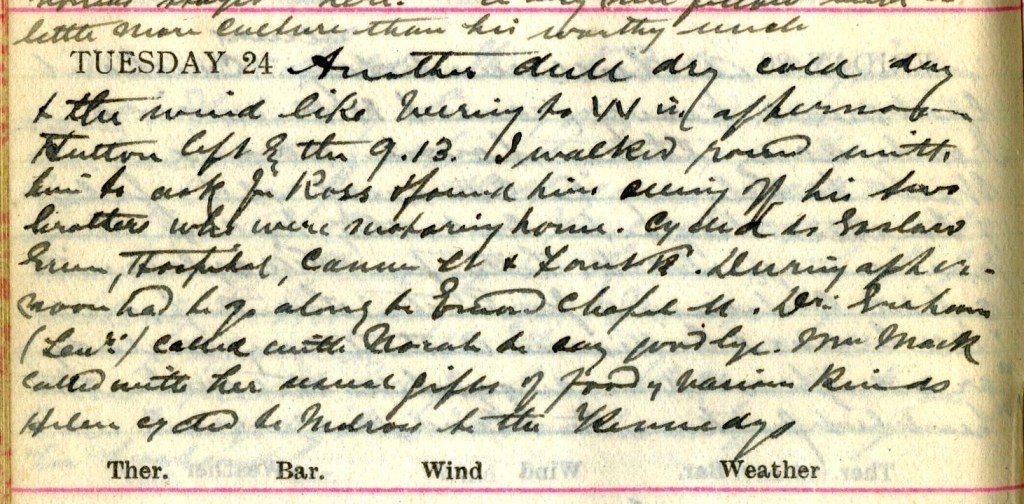 little more culture than his worthy uncle
TUESDAY 24 Another dull dry cold day
& the wind like veering to W in afternoon
Hutton left by the 9.13. I walked round with
him to ask for Ross & found him seeing off his two
brothers who were motoring home. Cycled to
Green, Hospital, Canmore Ct & . During after-
noon had to go along to Chapel St. Dr.
called with Norah to say goodbye. Mrs Mack
called with her usual gifts of food of various kinds
Helen cycled to Melrose to the Kennedys
Ther. Bar. Wind Weather